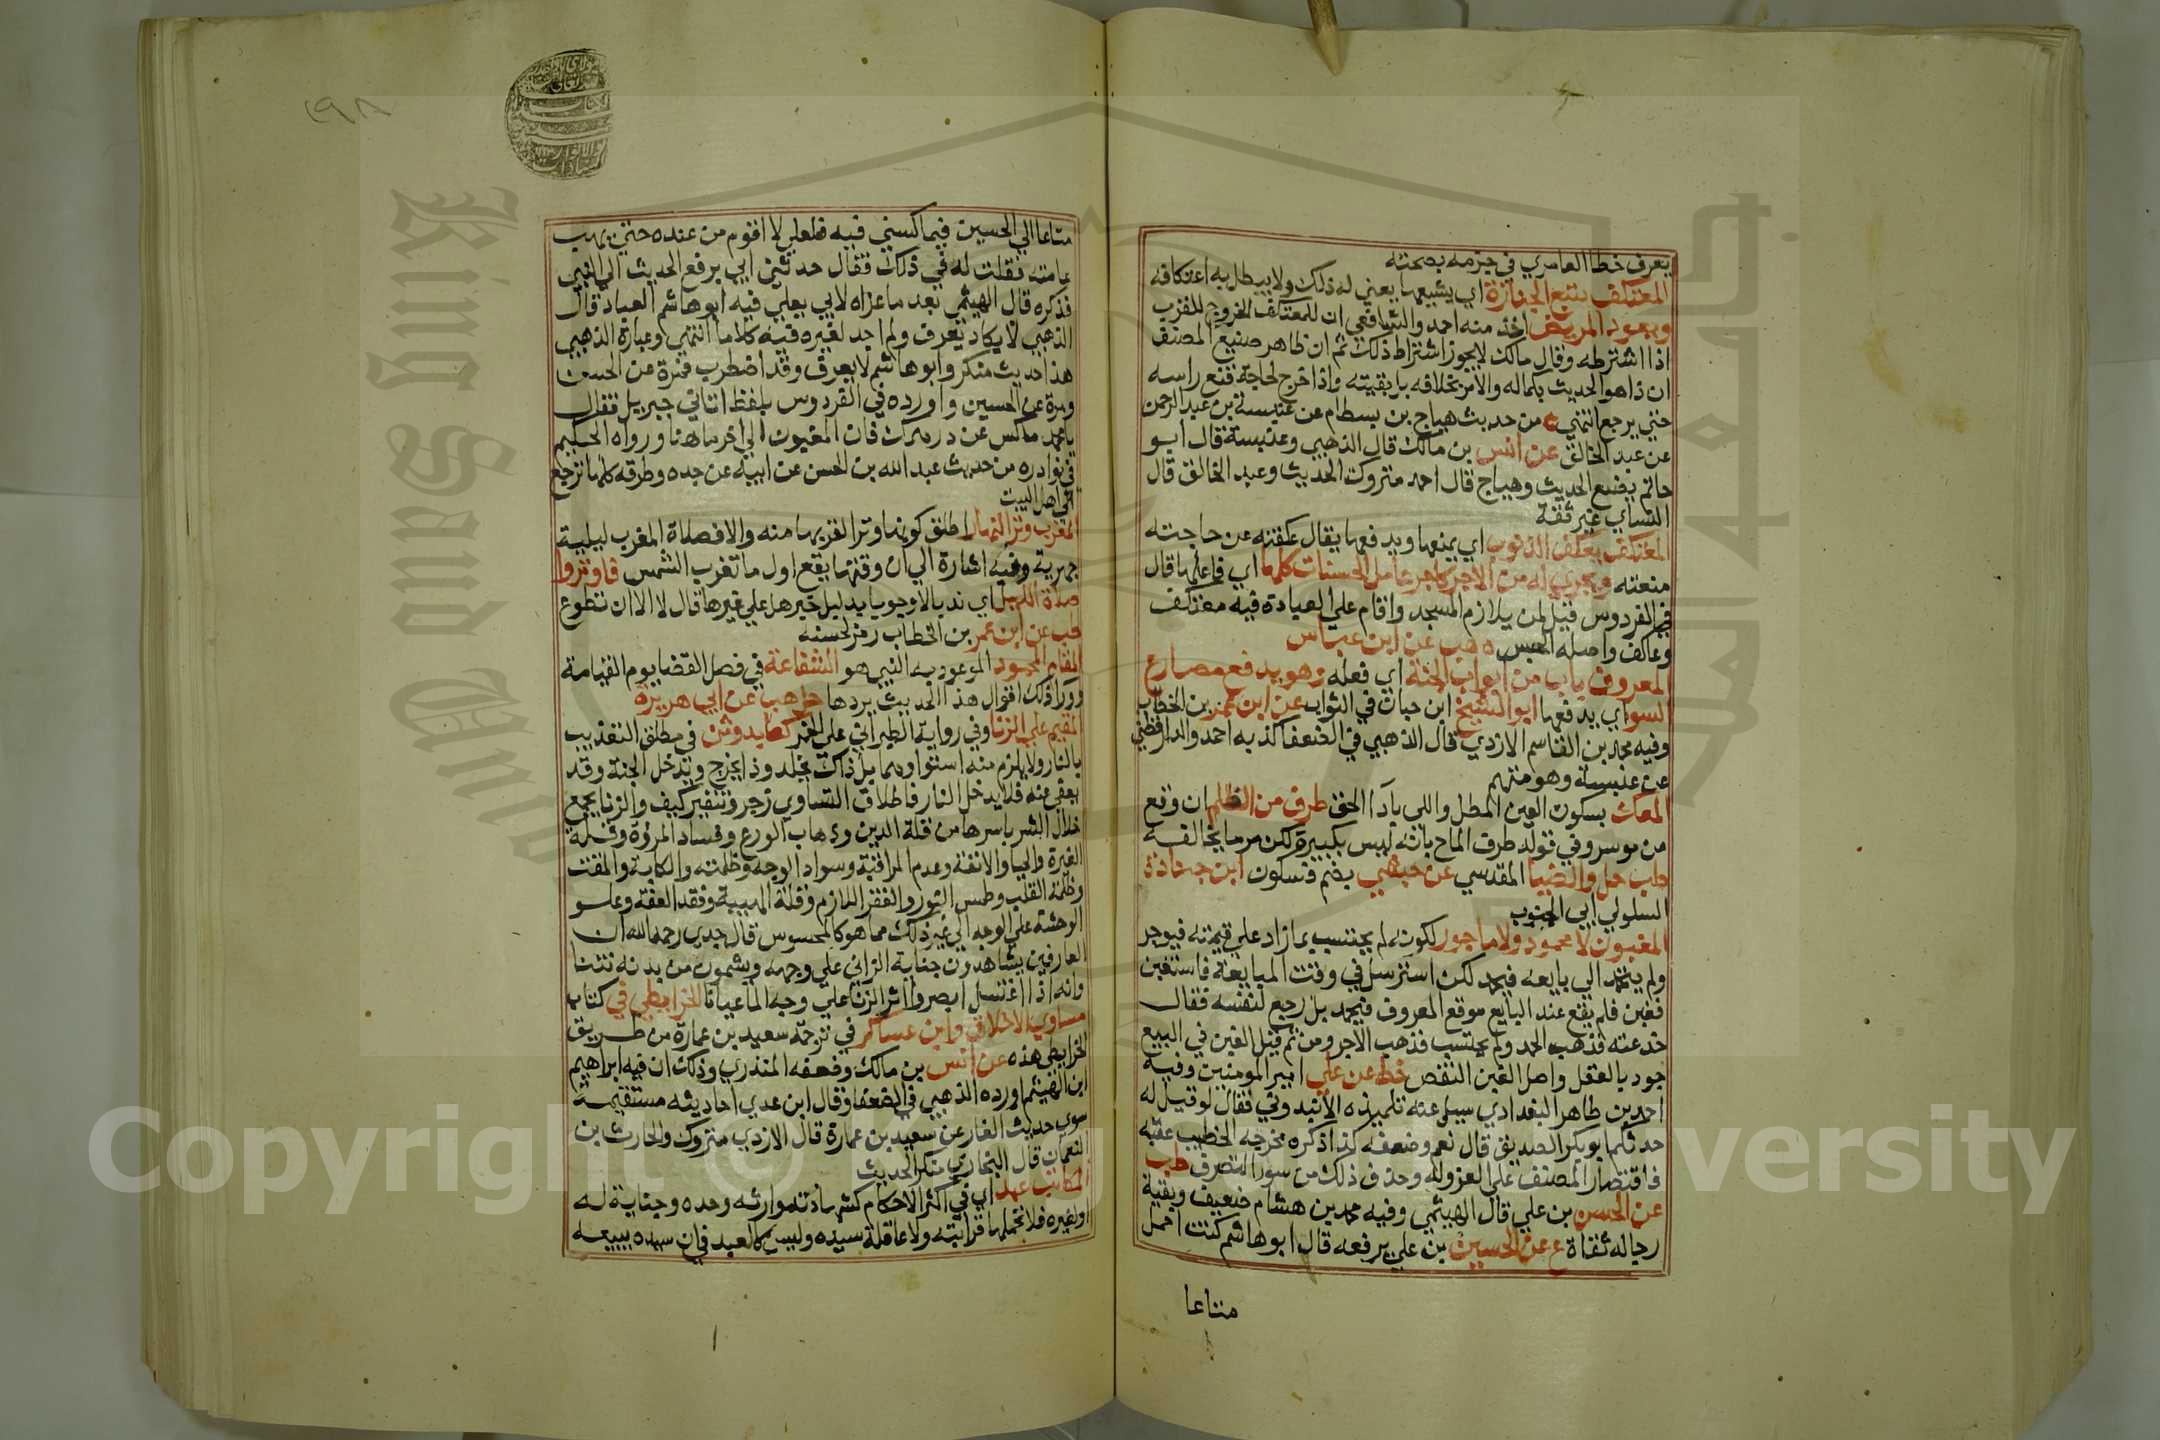 يعرف خطا العامري في جزمه بصحته
المعتكف يتبع الجنازة اي يشيعها يعني له ذلك ولا يبطل به اعتكافه
ويعود المريض اخذ منه احمد والشافعي ان للمعتكف الخروج للقرب
اذا اشترطه وقال مالك لا يجوز اشتراط ذلك ثم ان ظاهر صنيع المصنف
ان ذا هو الحديث بكماله والامر بخلافه بل بقيته واذا خرج لحاجة قنع راسه
حتي يرجع انتهي ه من حديث هياج بن بسطام عن عنبسة بن عبد الرحمن
عن عبد الخالق عن انس بن مالك قال الذهبي وعنبسة قال ابو
حاتم يضع الحديث وهياج قال احمد متروك الحديث وعبد الخالق قال
النساي غير ثقة
المعتكف يعكف الذنوب اي يمنعها ويدفعها يقال عكفته عن حاجته
منعته ويجري له من الاجر كاجر عامل الحسنات كلها اي فاعلها قال
في الفردوس قيل لمن يلازم المسجد واقام علي العبادة فيه معتكف
وعاكف واصله الحبس ه هب عن ابن عباس
المعروف باب من ابواب الجنة اي فعله وهو يدفع مصارع
السو اي يدفعها ابو الشيخ ابن حبان في الثواب عن ابن عمر بن الخطاب
وفيه محمد بن القاسم الازدي قال الذهبي في الضعفا كذبه احمد والدارقطني
عن عنبسة وهو متهم
المعك بسكون العين المطل واللي باداا الحق طرف من الظلم ان وقع
من موسر وفي قوله طرف الماح بانه ليس بكبيرة لكن مر ما يخالفه
طب حل والضيا المقدسي عن حبشي بضم فسكون ابن جنادة
السلولي ابي الجنوب
المغبون لا محمود ولا ماجور لكونه لم يحتسب بما زاد علي قيمته فيوجر
ولم يتحمد الي بايعه فيحمد لكن استرسل في وقت المبايعة فاستغبن
فغبن فلم يقع عند البايع موقع المعروف فيحمد بل رجع لنفسه فقال
خدعته فذهب الحمد ولم يحتسب فذهب الاجر ومن ثم قيل الغبن في البيع
جود بالعقل واصل الغبن النقص خط عن علي امير المومنين وفيه
احمد بن طاهر البغدادي سيل عنه تلميزه الابندوني فقال لو قيل له
حدثكم ابو بكر الصديق قال نعم وضعفه كذا ذكره مخرجه الخطيب عقبه
فاقتصار المصنف علي العزو له وحذف ذلك من سوء التصرف طب
عن الحسن بن علي قال الهيثمي وفيه محمد بن هشام ضعيف وبقية
رجاله ثقاة ع عن الحسين بن علي يرفعه قال ابو هاشم كنت احمل
متاعا
متاعا الي الحسين فيما كسني فيه فلعلي لا اقوم من عنده حتي يهب
عامته فقلت له في ذلك فقال حدثني ابي يرفع الحديث الي النبي
فذكره قال الهيثمي بعد ما عزاه لابي يعلي فيه ابو هاشم العباد قال
الذهبي لا يكاد يعرف ولم اجد لغيره فيه كلاما انتهي وعبارة الذهبي
هذا حديث منكر وابو هاشم لا يعرف وقد اضطرب فمرة عن الحسن
ومرة عن الحسين واورده في الفردوس بلفظ اتاني جبريل فقال
يا محمد ماكس عن درهمك فان المغبون الي اخر ما هنا ورواه الحكيم
في نوادره من حديث عبد الله بن الحسن عن ابيه عن جده وطرقه كلها ترجع
الي اهل البيت
المغرب وتر النهار اطلق كونها وترا لقربها منه والا فصلاة المغرب ليلية
جهرية وفيه اشارة الي ان وقتها يقع اول ما تغرب الشمس فاوتروا
صلاة الليل اي ندبا لا وجوبا بدليل خبر هل علي غيرها قال لا الا ان تطوع
طب عن ابن عمر بن الخطاب رمز لحسنه
المقام المحمود الموعود به النبي هو الشفاعة في فصل القضا يوم القيامة
وورا ذلك اقوال هذا الحديث يردها حل هب عن ابي هريرة
المقيم علي الزنا وفي رواية الطبراني علي الخمر كعابد وثن في مطلق التعذيب
بالنار ولا يلزم منه استواوهما بل ذاك يخلد وذا يخرج ويدخل الجنة وقد
يعفي عنه فلا يدخل النار فاطلاق التساوي زجر وتنفير كيف والزنا يجمع
خلال الشر باسرها من قلة الدين وذهاب الورع وفساد المروة وقلة
الغيرة والحيا والانفة وعدم المراقبة وسواد الوجه وظلمته والكابة والمقت
وظلمة القلب وطمس النور والفقر اللازم وقلة الهيبة وفقد العفة وعلو
الوحشة علي الوجه الي غير ذلك مما هو كالمحسوس قال جدي رحمه الله ان
العارفين يشاهدون جنابة الزاني علي وجهه ويشمون من بدنه نتنا
وانه اذا اغتسل ابصروا اثر الزنا علي وجه الما عيانا الخرايطي في كتاب
مساوي الاخلاق وابن عساكر في ترجمة سعيد بن عمارة من طريق
الخرايطي هذه عن انس بن مالك وضعفه المنذري وذلك ان فيه ابراهيم
ابن الهيثم اورده الذهبي في الضعفا وقال ابن عدي احاديثه مستقيمة
سوي حديث الغار عن سعيد بن عمارة قال الازدي متروك والحارث بن
النعمان قال البخاري منكر الحديث
المكاتب عبد اي في اكثر الاحكام كشهادته وارثه وحده وجناية له
ولغيره فلا تحملها قرابته ولا عاقلة سيده وليس كالعبد في ان سيده يبيعه